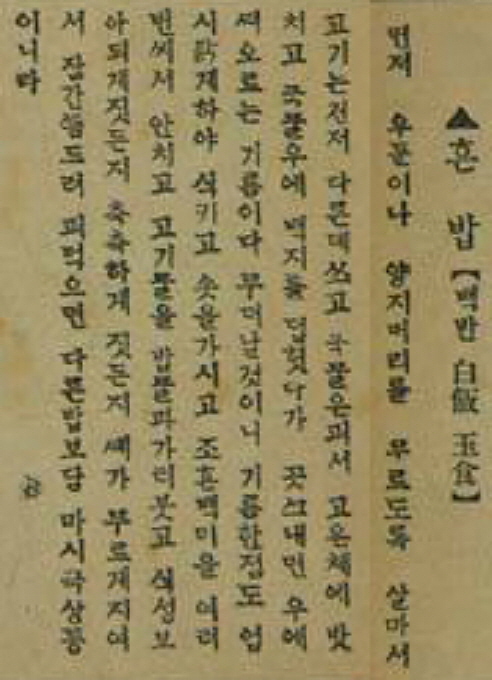 ▲흔 밥【백반 白飯 玉食】
먼저 우둔이나 양지머리를 무르도록 살마서
고기는건저 다른데쓰고 국물은퍼서 고은체에 밧
치고 국물우에 백지를 덥헛다가 끗으내면 우에
떠오르는 기름이다 무더날것이니 기름한점도 업
시 하야 식키고 솟을가시고 조흔백미을 여러
번씨서 안치고 고기물을 밥물파가티붓고 식성보
아되게짓든지 축축하게 짓든지 때가 무르게지여
서 잠간뜸드려 퍼먹으면 다른밥보담 마시극상품
이니라